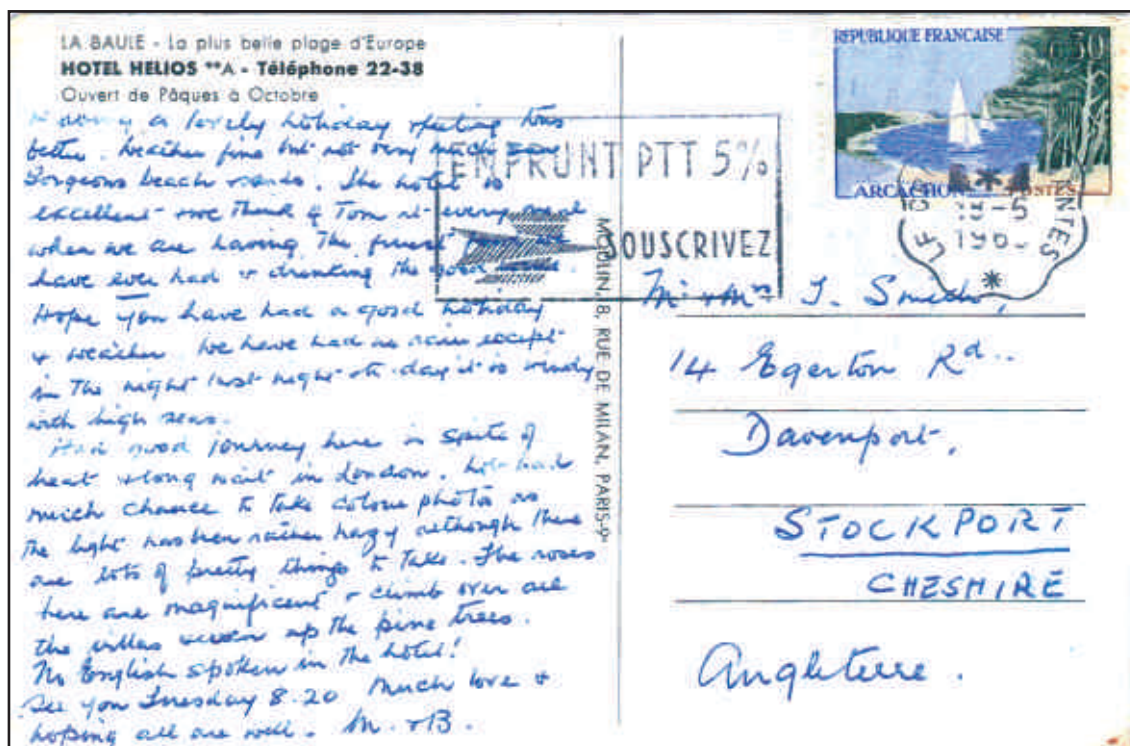 LA BAULE - La plus belle plage d'Europe
HOTEL HELIOS **A - Téléphone 22-38
Ouvert de Pâques à Octobre
a lovely holiday & feeling tons
better. Weather fine but not very much sun
Gorgeous beach & sands. The hotel is
excellent & we think of Tom at every meal
when we are having the finest food we
have ever had & drinking the good wine.
Hope you have had a good holiday
& weather. We have had no rain except
in the night last night & to-day it is windy
with high seas.
Had good journey here in spite of
heat & long wait in London. Not had
much chance to take colour photos as
the light has been rather hazy although there
are lots of pretty things to take. The roses
here are magnificent & climb over all
the villas & even up the pine trees.
No English spoken in the hotel!
See you Tuesday 8.20 Much love &
hoping all are well. M. & B.
EMPRUNT PTT 5%
SOUSCRIVEZ
MOULIN, 8, RUE DE MILAN, PARIS-9e
REPUBLIQUE FRANCAISE
0,50
ARCACHON POSTES
-5
196
NTES
Mr & Mrs J. Smith,
14 Egerton Rd..
Davenport,
STOCKPORT
CHESHIRE
Angleterre.